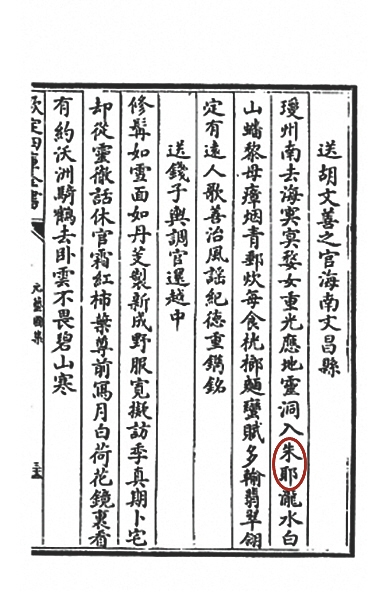 送胡文善之官海南文昌縣
瓊州南去海㝠㝠婺女重光應地靈洞入朱耶瀧水白
山蟠黎母瘴烟青郵炊每食桄榔麵蠻賦多輸翡翠翎
定有遠人歌善治風謡紀德重鐫銘
送錢子與調官還越中
修髯如雪面如丹芰製新成野服寛擬訪季真期卜宅
却從靈徹話休官霜紅柿葉尊前寫月白荷花鏡裏看
有約沃洲騎鶴去卧雲不畏碧山寒
欽定四庫全書
元藝圃集